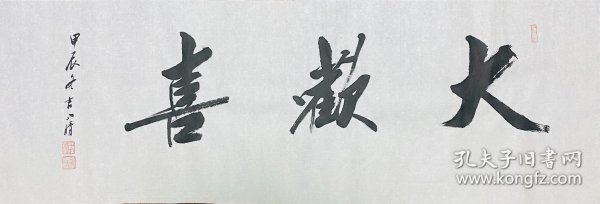 大歡喜
甲辰冬吉八晴
孔夫子旧书网
www.kongfz.com